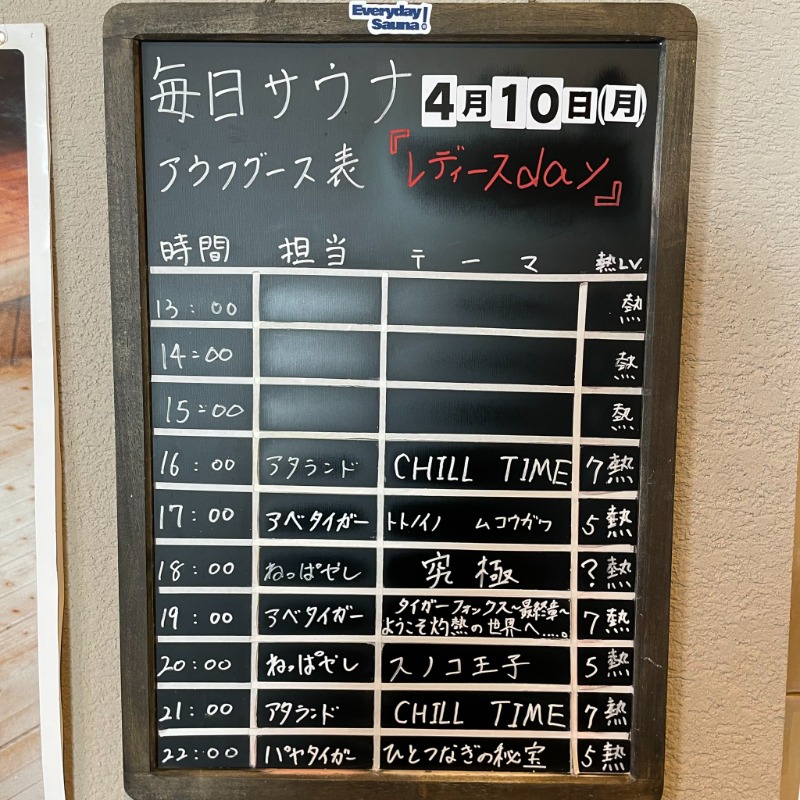 Everyday
Sauna!
毎日サウナ 4月10日(月)
アウフグース表 『レディースday』
時間 担当 テーマ 熱LV.
13:00 熱
14:00 熱
15:00 熱
16:00 アタランド CHILL TIME 7熱
17:00 アベタイガー トトノイノ ムコウガワ 5熱
18:00 ねっぱやし 究極 ?熱
19:00 アベタイガー タイガーフォックス~最終章~ 7熱
ようこそ灼熱の世界へ.....。
20:00 ねっぱやし スノコ王子 5熱
21:00 アタランド CHILL TIME 7熱
22:00 パヤタイガー ひとつなぎの秘宝 5熱